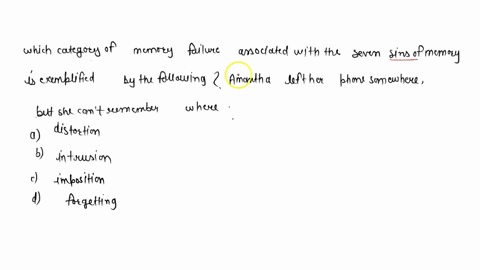 which category of memory failure associated with the seven sins of memory
is exemplified by the following ? Amantha left her phone somewhere,
but she can't remember where :
a) distortion
b) intrusion
c) imposition
d) forgetting